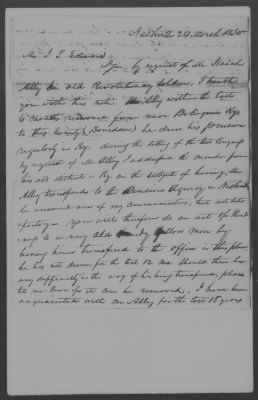 Nashville 24 March 1840
Mr. J. L. Edwards
Sir by request of Mr Isaiah
Alley an old Revolutionary Soldier, I trouble
you with this note. Mr Alley within the last
months removed from near Bowling Green Ky
to this County (Davidson) he drew his pension
regularly in Ky. during the sitting of the last congress
by request of Mr Alley I addressed the member from
his old district in Ky on the subject of having Mr
Alley transferred to the Pension Agency in Nashville
he answered one of my communications, but not sa
you will therefore do an act of Kind
ness to a very old needy yellow man by
having him transferred to the office in this place,
he has not drawn for the last 12 mo. Should there be
any difficulty in the way of his being transferred, please
let me know if it can be removed. I have been
acquainted with Mr Alley for the last 18 years